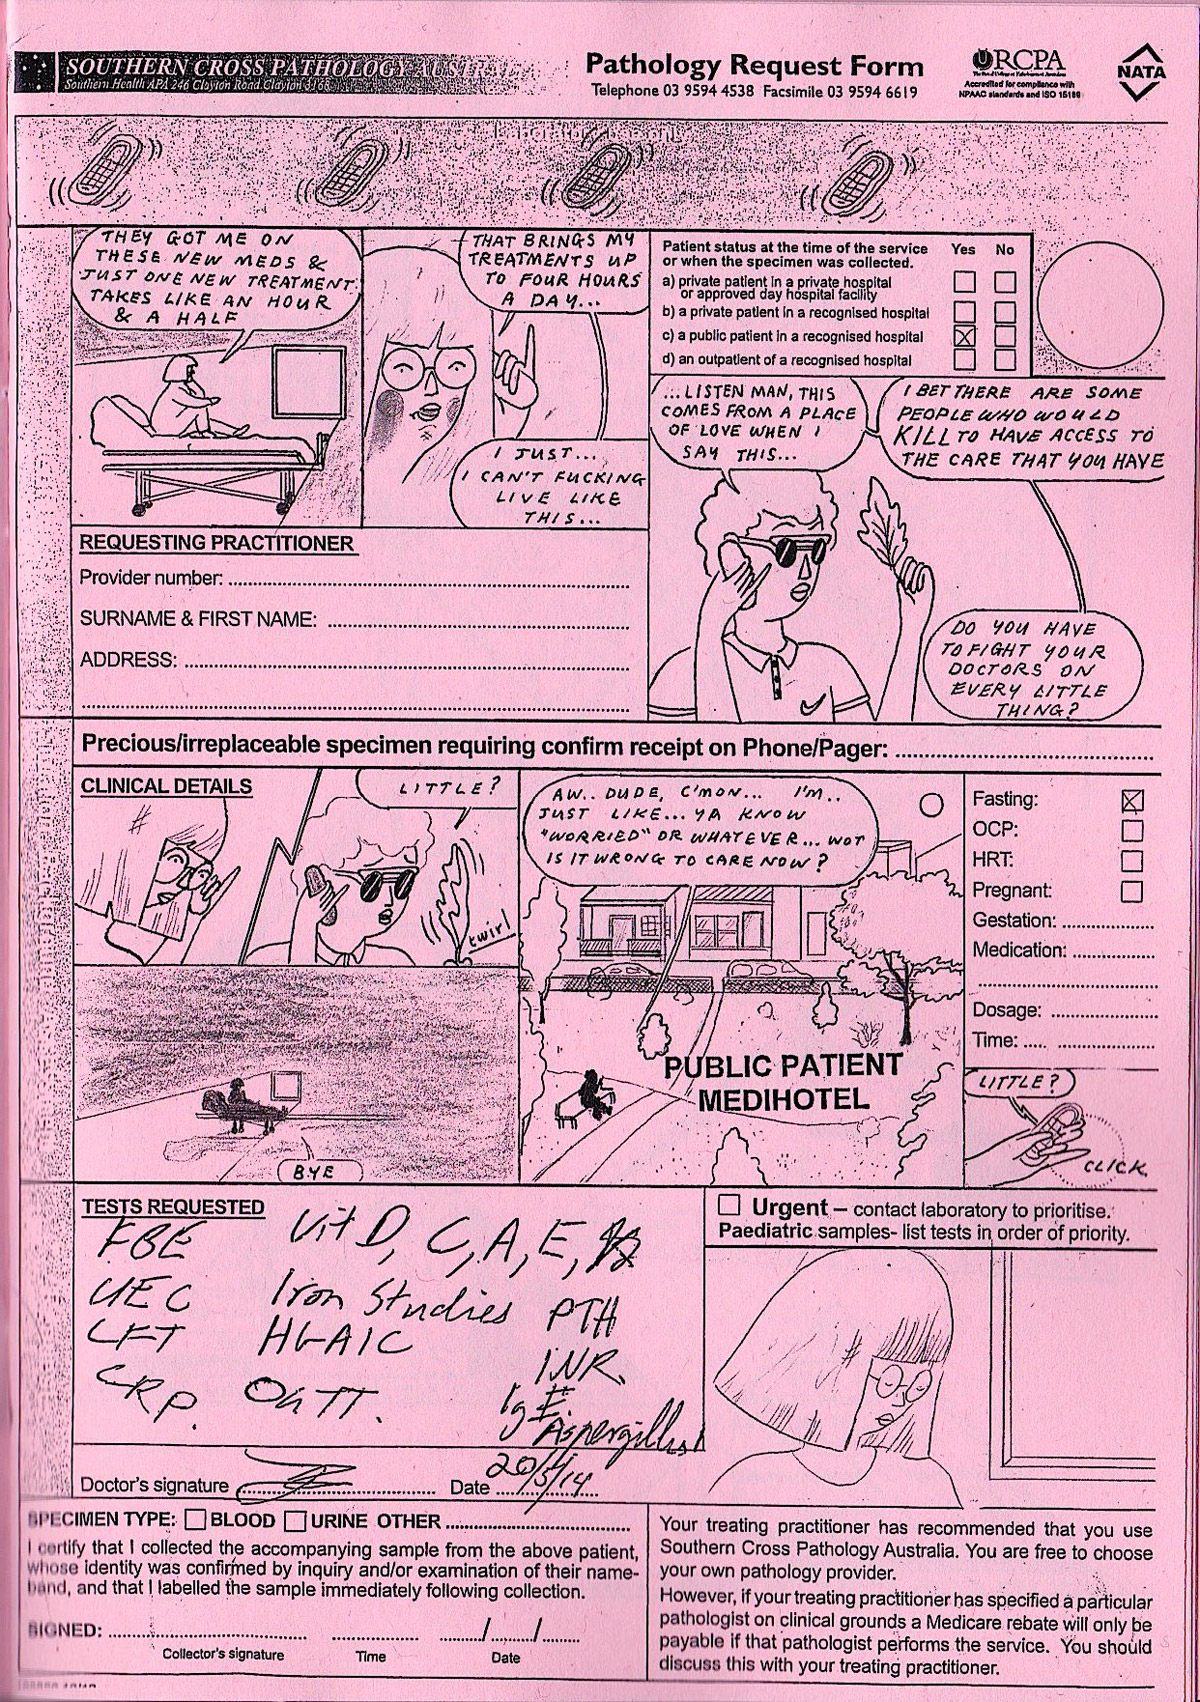 SOUTHERN CROSS PATHOLOGY AUSTRA
Southern Health APA 246 Clayton Road Clayton 3168
Pathology Request Form
Telephone 03 9594 4538 Facsimile 03 9594 6619
RCPA
Accredited for compliance with
NPAAC standards and ISO 15189
NATA
THEY GOT ME ON
THESE NEW MEDS &
JUST ONE NEW TREATMENT
TAKES LIKE AN HOUR
& A HALF
THAT BRINGS MY
TREATMENTS UP
TO FOUR HOURS
A DAY...
I JUST...
I CAN'T FUCKING
LIVE LIKE
THIS...
Patient status at the time of the service
or when the specimen was collected.
Yes No
a) private patient in a private hospital
or approved day hospital facility
b) a private patient in a recognised hospital
c) a public patient in a recognised hospital
d) an outpatient of a recognised hospital
...LISTEN MAN, THIS
COMES FROM A PLACE
OF LOVE WHEN I
SAY THIS...
I BET THERE ARE SOME
PEOPLE WHO WOULD
KILL TO HAVE ACCESS TO
THE CARE THAT YOU HAVE
DO YOU HAVE
TO FIGHT YOUR
DOCTORS ON
EVERY LITTLE
THING?
REQUESTING PRACTITIONER
Provider number:
SURNAME & FIRST NAME:
ADDRESS:
Precious/irreplaceable specimen requiring confirm receipt on Phone/Pager:
CLINICAL DETAILS
LITTLE?
twirl
AW.. DUDE, C'MON... I'M..
JUST LIKE... YA KNOW
"WORRIED" OR WHATEVER... WOT
IS IT WRONG TO CARE NOW?
Fasting:
OCP:
HRT:
Pregnant:
Gestation:
Medication:
Dosage:
Time:
BYE
PUBLIC PATIENT
MEDIHOTEL
LITTLE?
CLICK
TESTS REQUESTED
FBE Vit D, C, A, E,
UEC Iron Studies PTH
LFT HGAIC INR.
CRP. OGTT. IgE.
Aspergillus
Doctor's signature Date 20/5/14
Urgent – contact laboratory to prioritise.
Paediatric samples- list tests in order of priority.
SPECIMEN TYPE: BLOOD URINE OTHER
I certify that I collected the accompanying sample from the above patient,
whose identity was confirmed by inquiry and/or examination of their name-
band, and that I labelled the sample immediately following collection.
SIGNED:
Collector's signature Time Date
Your treating practitioner has recommended that you use
Southern Cross Pathology Australia. You are free to choose
your own pathology provider.
However, if your treating practitioner has specified a particular
pathologist on clinical grounds a Medicare rebate will only be
payable if that pathologist performs the service. You should
discuss this with your treating practitioner.